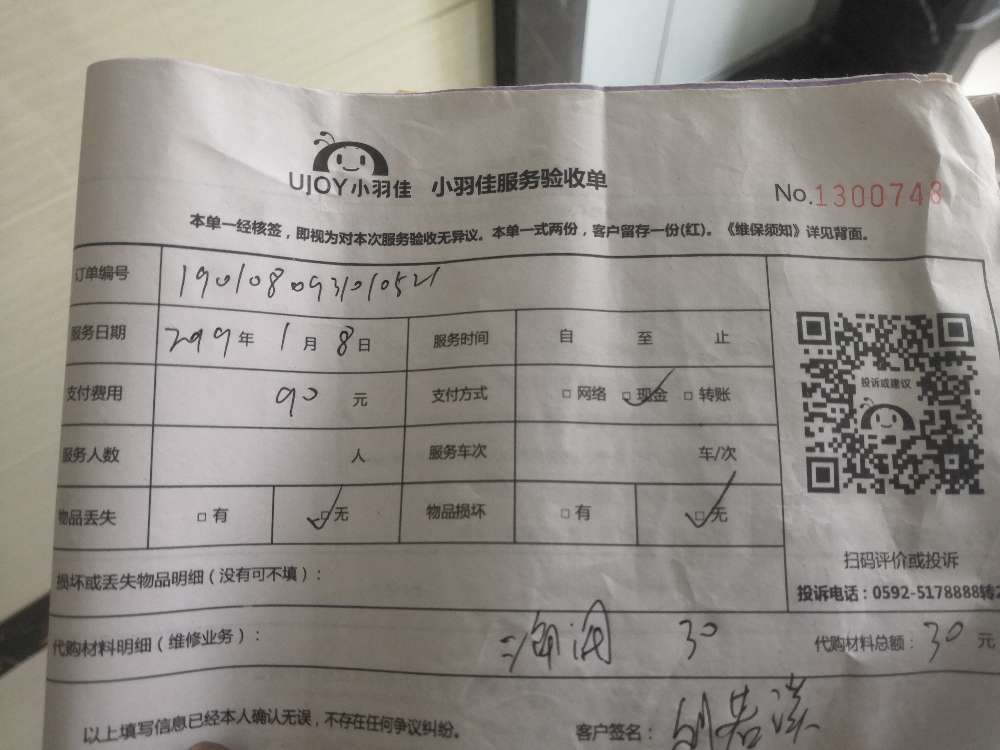 UJOY小羽佳 小羽佳服务验收单
No.1300748
本单一经核签，即视为对本次服务验收无异议。本单一式两份，客户留存一份(红)。《维保须知》详见背面。
订单编号 1901080931010521
服务日期 2019年1月8日 服务时间 自 至 止
支付费用 90 元 支付方式 □网络 □现金 □转账
服务人数 人 服务车次 车/次
物品丢失 □有 □无 物品损坏 □有 □无
投诉或建议
扫码评价或投诉
投诉电话：0592-5178888转2
损坏或丢失物品明细（没有可不填）：
代购材料明细（维修业务）： 30 代购材料总额：30元
以上填写信息已经本人确认无误，不存在任何争议纠纷。 客户签名：